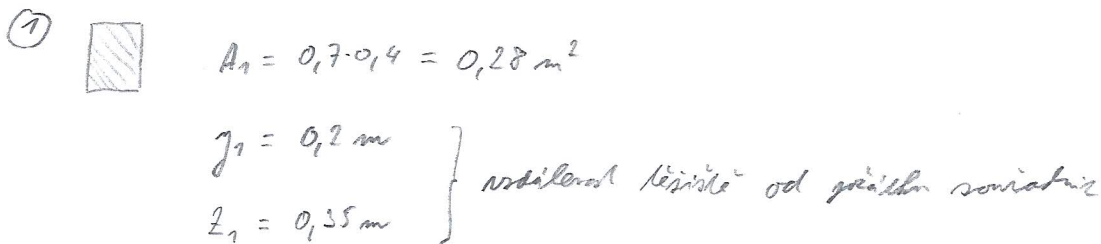 1
A₁ = 0,7·0,4 = 0,28 m²
y₁ = 0,2 m
z₁ = 0,35 m
vzdálenost těžiště od počátku souřadnic